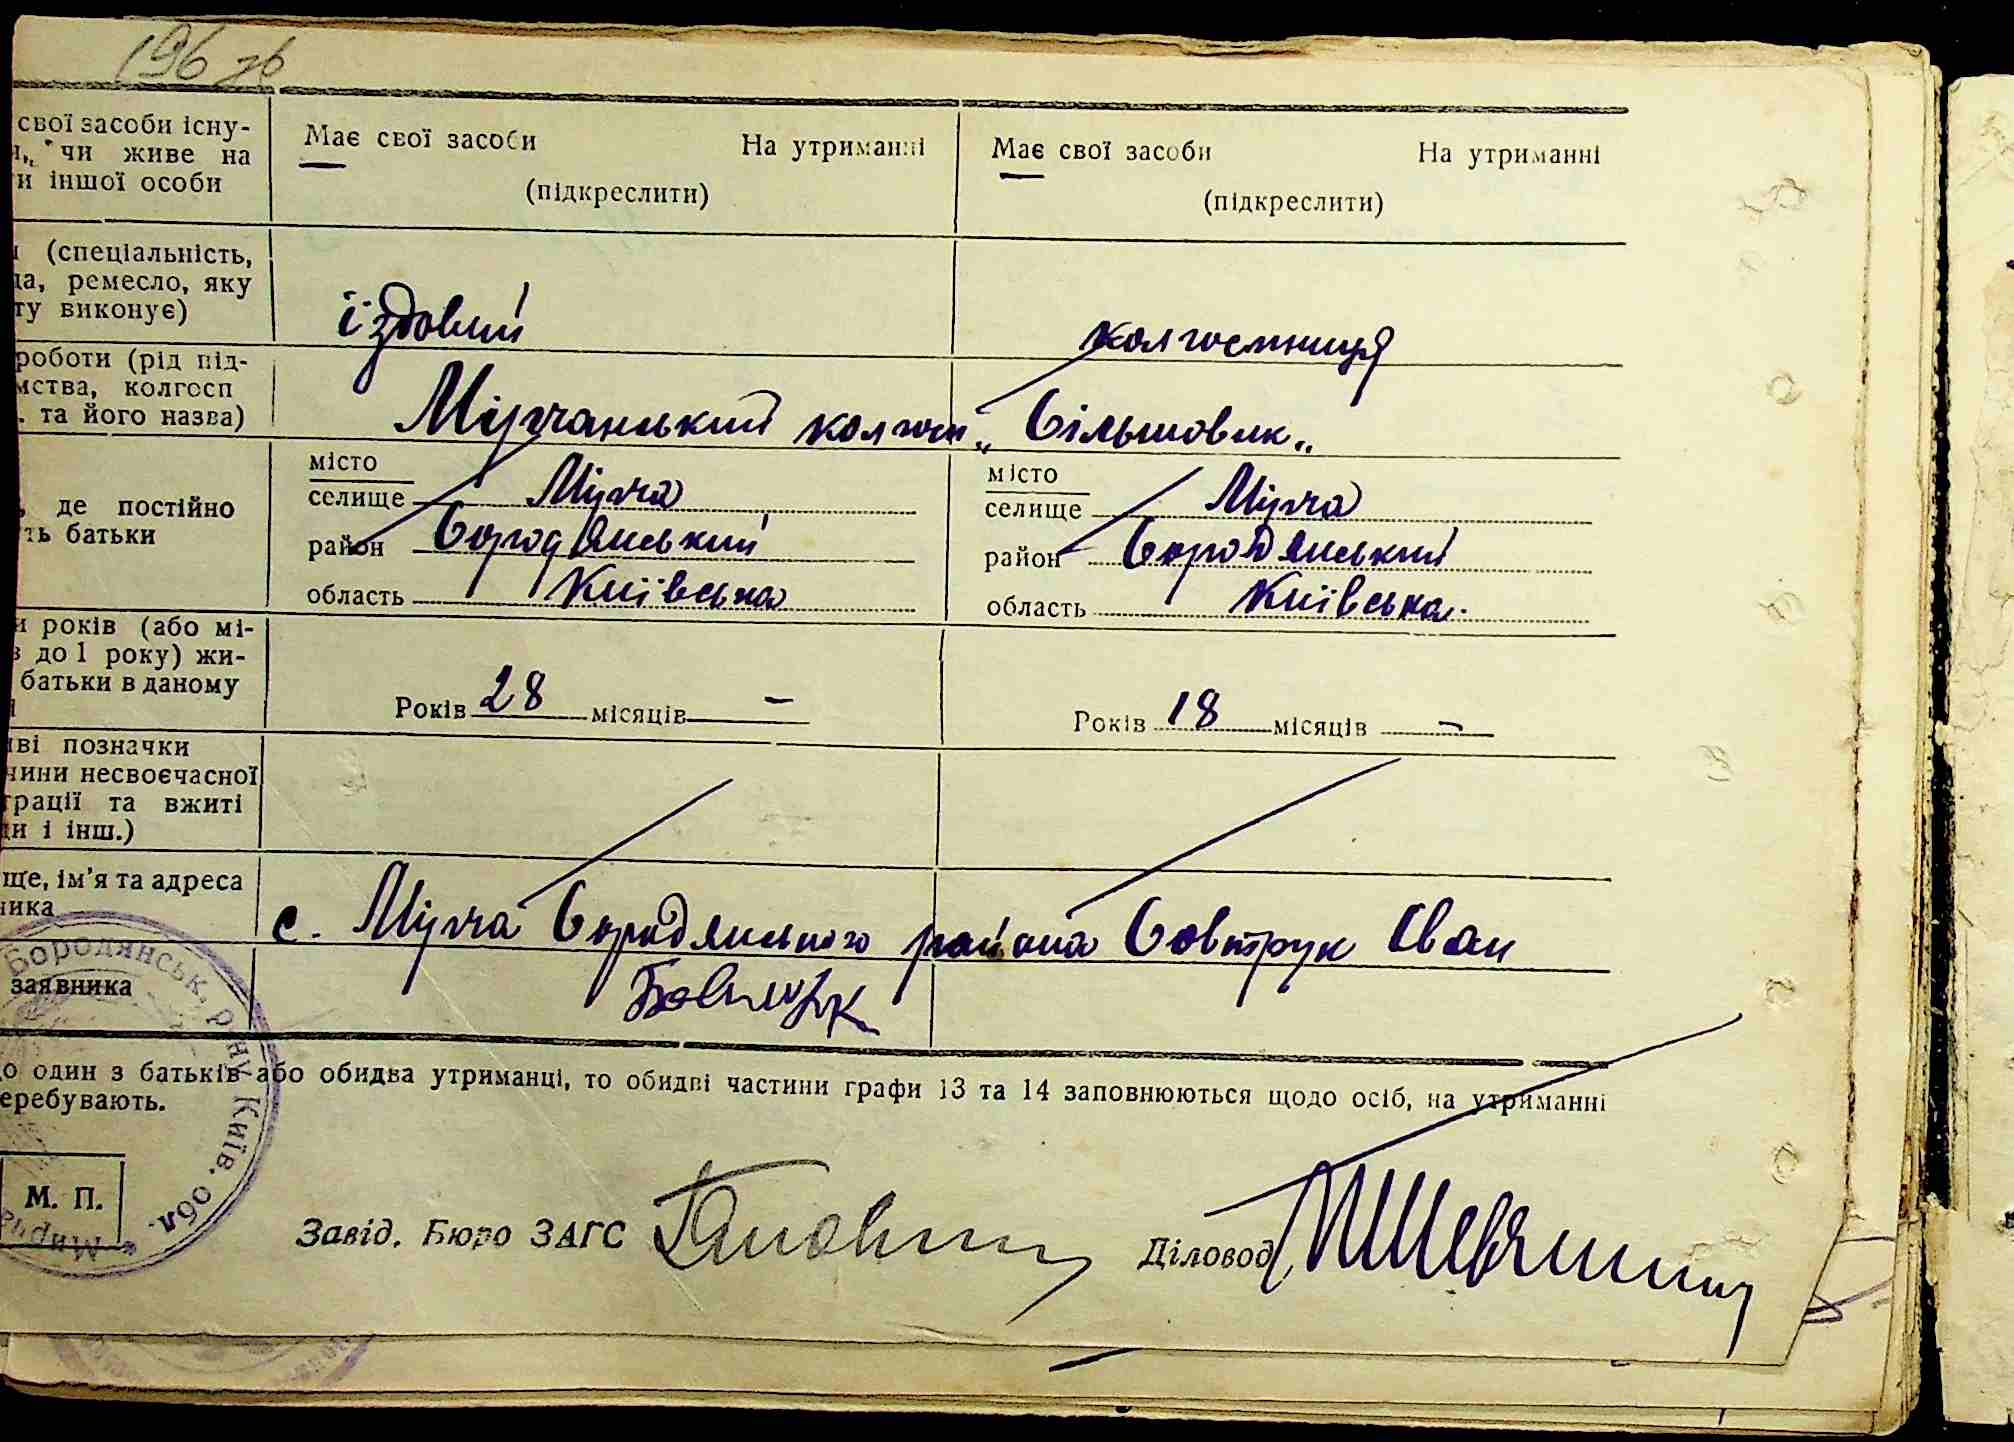 196 зв
свої засоби існу-
чи живе на
и іншої особи
Має свої засоби На утриманні
(підкреслити)
Має свої засоби На утриманні
(підкреслити)
(спеціальність,
да, ремесло, яку
ту виконує)
їздовий
колгоспниця
роботи (рід під-
мства, колгосп
. та його назва)
Мірчанський колгосп „Більшовик„
, де постійно
ть батьки
місто
селище Мірча
район Бородянський
область Київська
місто
селище Мірча
район Бородянський
область Київська.
и років (або мі-
в до 1 року) жи-
батьки в даному
Років 28 місяців –
Років 18 місяців –
иві позначки
чини несвоєчасної
трації та вжиті
ди і інш.)
ще, ім'я та адреса
ника
с. Мірча Бородянського района Бовтрук Іван
заявника
Бовтрук
о один з батьків або обидва утриманці, то обидві частини графи 13 та 14 заповнюються щодо осіб, на утриманні
еребувають.
Бородянськ. р-ну Київ. обл.
М. П.
Завід. Бюро ЗАГС
Діловод